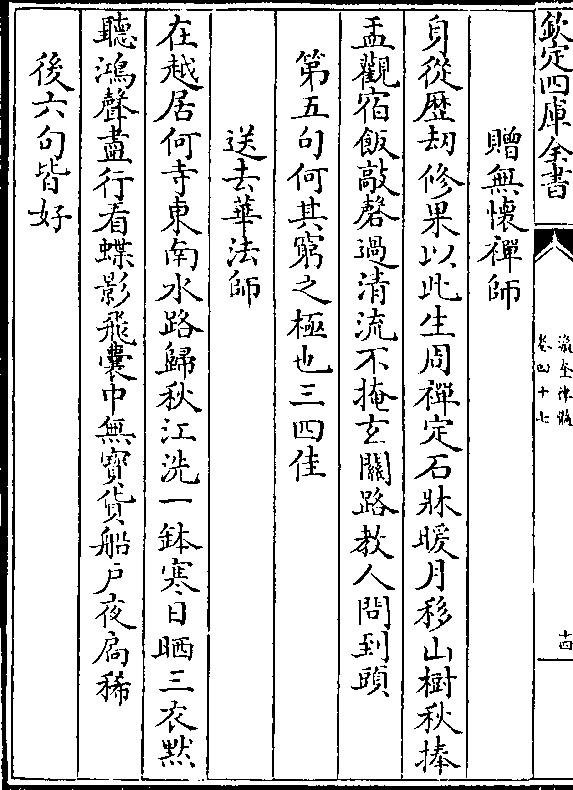 欽定四庫全書
瀛奎律髓
卷四十七
十四
贈無懷禪師
身從歴劫修果以此生周禪定石牀暖月移山樹秋捧
盂觀宿飯敲磬過清流不掩玄關路教人問到頭
第五句何其窮之極也三四佳
送去華法師
在越居何寺東南水路歸秋江洗一鉢寒日晒三衣黙
聽鴻聲盡行看蝶影飛囊中無寶貨船戸夜扄稀
後六句皆好